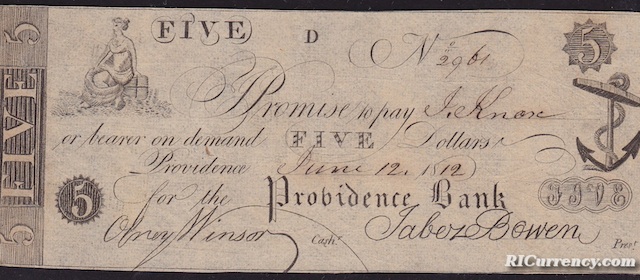 FIVE
5
5
FIVE D No 2961 5
Promise to pay J. Knox
or bearer on demand FIVE Dollars
Providence June 12. 1812
5 for the Providence Bank FIVE
Olney Winsor Cashr Jabez Bowen Prest
RICurrency.com